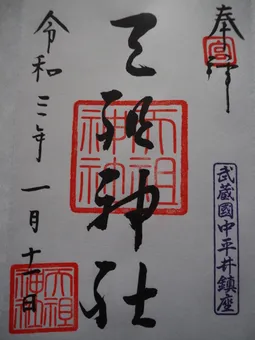 奉拝
武蔵國中平井鎮座
天祖神社
天祖神社
令和三年一月十一日
天祖神社